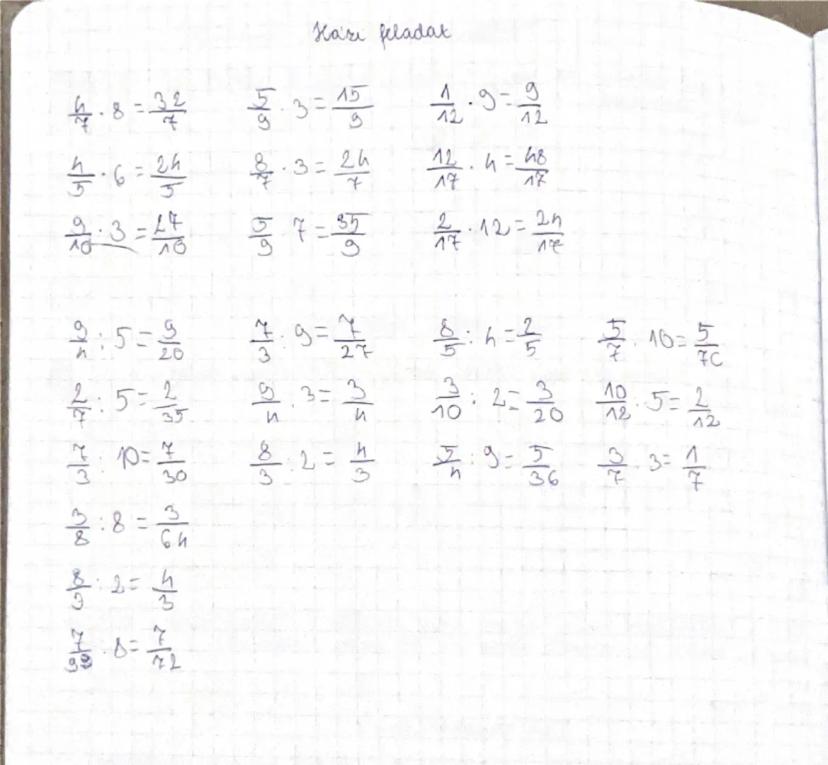 Házi feladat
4/7 · 8 = 32/7 5/9 · 3 = 15/9 1/12 · 9 = 9/12
4/5 · 6 = 24/5 8/7 · 3 = 24/7 12/17 · 4 = 48/17
9/10 · 3 = 27/10 5/9 · 7 = 35/9 2/17 · 12 = 24/17
9/4 : 5 = 9/20 7/3 : 9 = 7/27 8/5 : 4 = 2/5 5/7 : 10 = 5/70
2/7 : 5 = 2/35 9/4 : 3 = 3/4 3/10 : 2 = 3/20 10/12 : 5 = 2/12
7/3 : 10 = 7/30 8/3 : 2 = 4/3 5/4 : 9 = 5/36 3/7 : 3 = 1/7
3/8 : 8 = 3/64
8/3 : 2 = 4/3
: 8 = 7/72